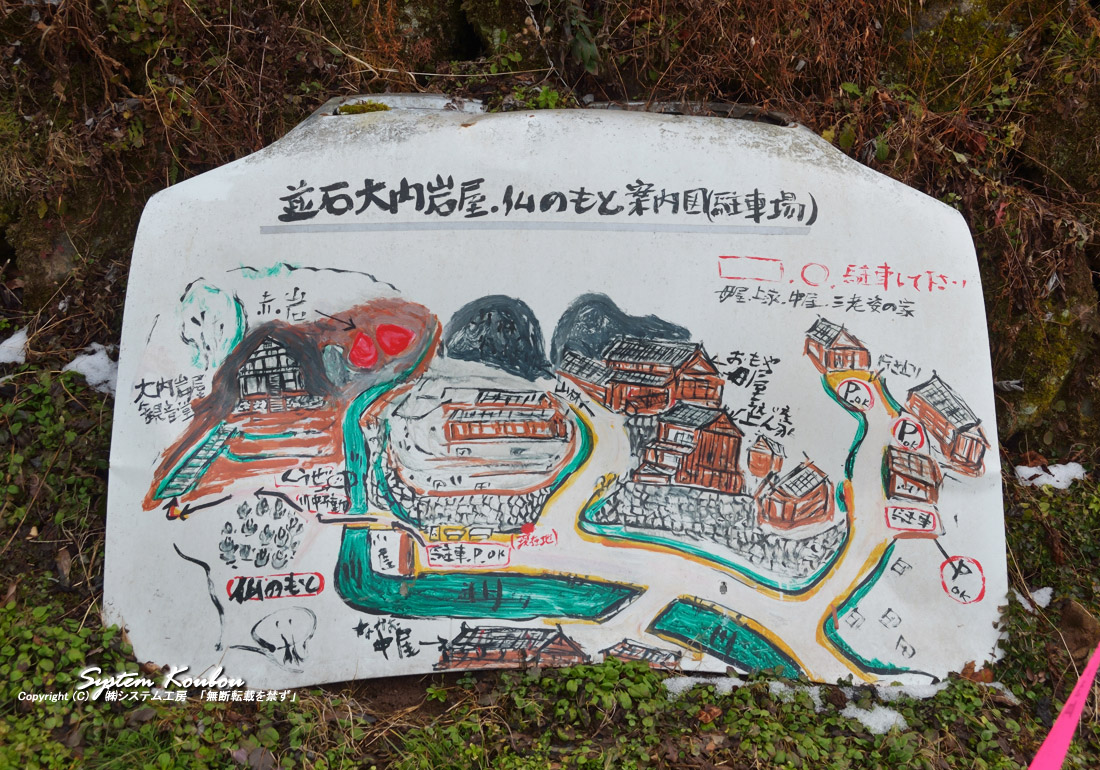 並石大内岩屋.仏のもと案内図(駐車場)
.○.駐車して下さい
母屋.上家.中屋.三老婆の家
赤岩
大内岩屋
観音堂
おもや
母屋
P.OK
P
OK
駐車場
P
OK
小屋
駐車.P.OK
現在地
仏のもと
川
川
中屋
System Koubou
Copyright (C) ㈱システム工房 「無断転載を禁ず」